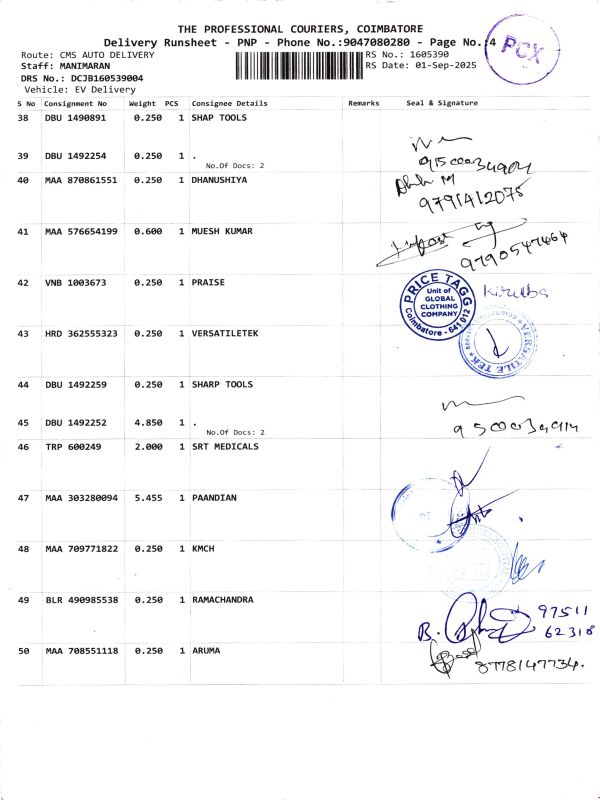 THE PROFESSIONAL COURIERS, COIMBATORE
Delivery Runsheet - PNP - Phone No.:9047080280 - Page No.:4
PCX
Route: CMS AUTO DELIVERY
RS No.: 1605390
Staff: MANIMARAN
RS Date: 01-Sep-2025
DRS No.: DCJB160539004
Vehicle: EV Delivery
S No Consignment No Weight PCS Consignee Details Remarks Seal & Signature
38 DBU 1490891 0.250 1 SHAP TOOLS
39 DBU 1492254 0.250 1 .
No.Of Docs: 2
40 MAA 870861551 0.250 1 DHANUSHIYA
9791412075
41 MAA 576654199 0.600 1 MUESH KUMAR
9790547464
42 VNB 1003673 0.250 1 PRAISE
PRICE TAGG
Unit of
GLOBAL
CLOTHING
COMPANY
Coimbatore - 641 012
Kiruba
43 HRD 362555323 0.250 1 VERSATILETEK
VERSATILE TEK
44 DBU 1492259 0.250 1 SHARP TOOLS
45 DBU 1492252 4.850 1 .
No.Of Docs: 2
46 TRP 600249 2.000 1 SRT MEDICALS
47 MAA 303280094 5.455 1 PAANDIAN
48 MAA 709771822 0.250 1 KMCH
49 BLR 490985538 0.250 1 RAMACHANDRA
97511
62318
50 MAA 708551118 0.250 1 ARUMA
8778147734.